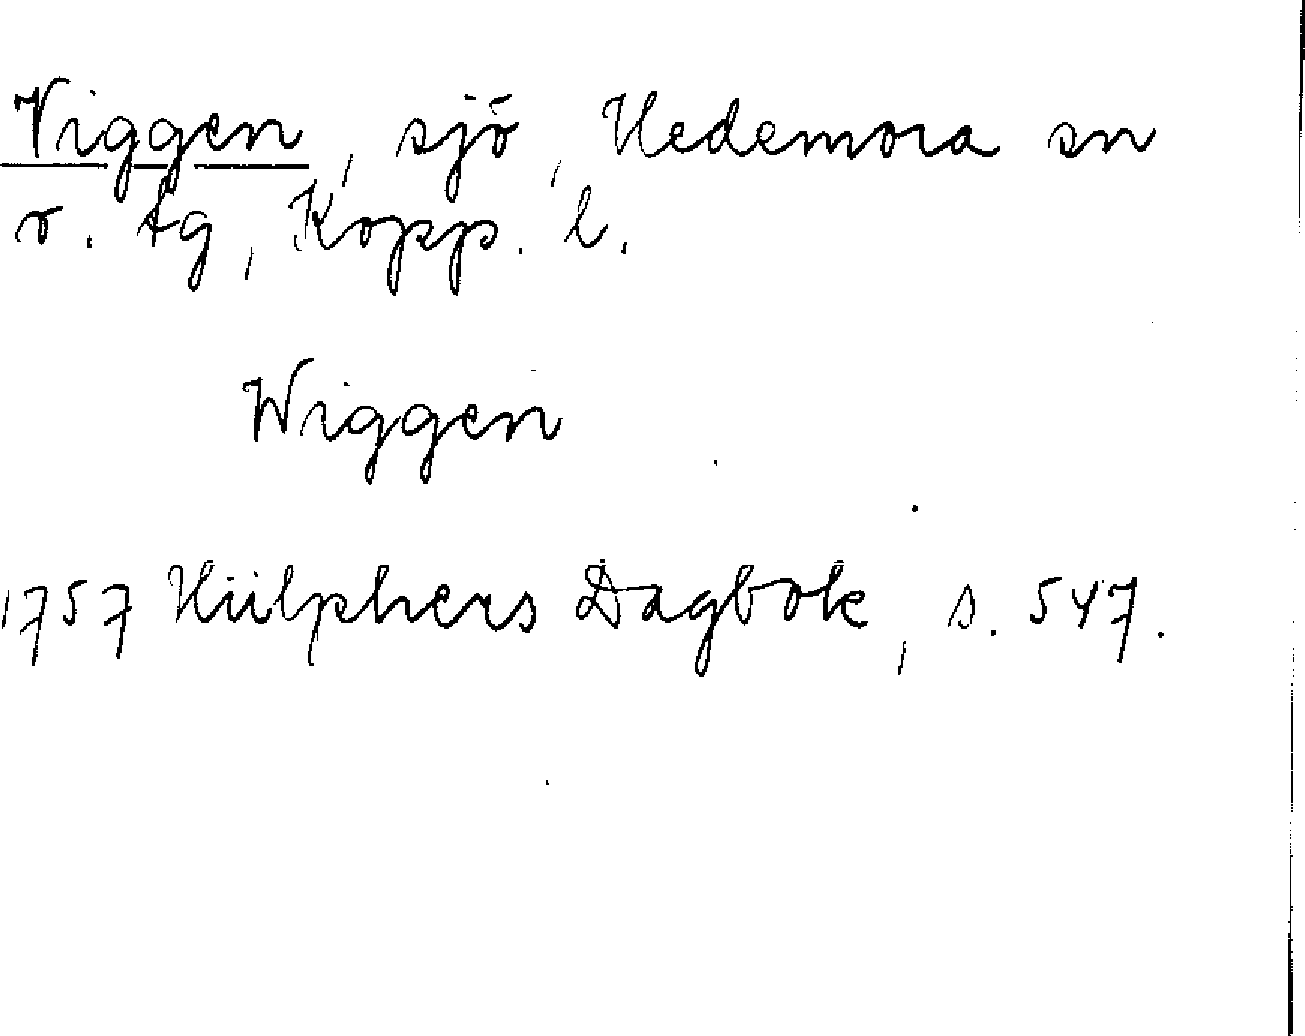 Viggen, sjö, Hedemora sn
o. tg, Kopp. l.
Wiggen
1757 Hülphers Dagbok, s. 547.